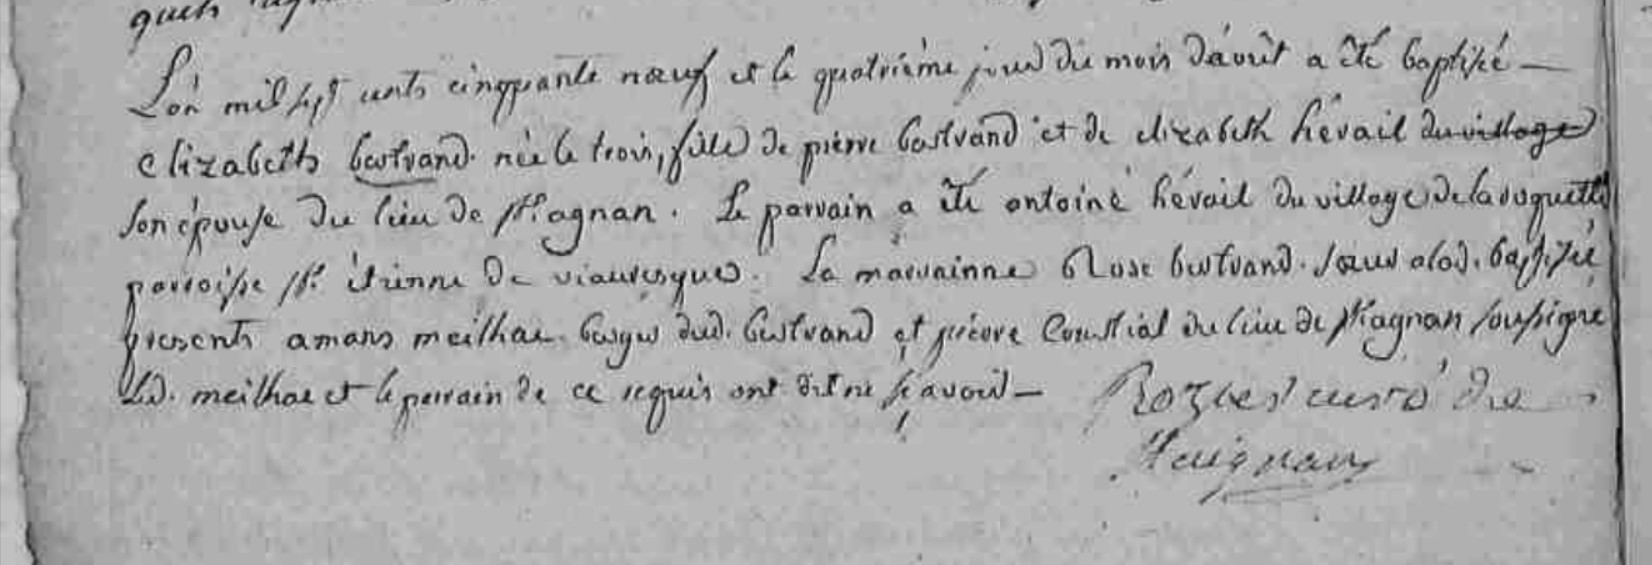 L'an mil sept cents cinqquante nœuf et le quatrième jour du mois d'août a été baptisée —
Elizabeth bertrand née le trois, fille de pierre bertrand et de elizabeth hérail du village
son épouse du lieu de stagnan. Le parrain a été antoine hérail du village de la
parroisse st. étienne de viauresque. La marrainne Rose bertrand. sœur alad. baptisée
presents amans meilhac berger dud. bertrand et pierre du lieu de stagnan soussigné
Led. meilhac et le parrain de ce requis ont dit ne sçavoir — curé de